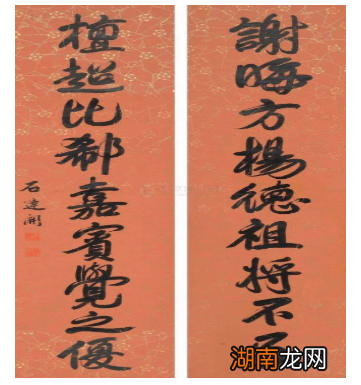 謝晦方楊德祖將不
檀超比郗嘉賓覺之優
石達開
湖南龙网